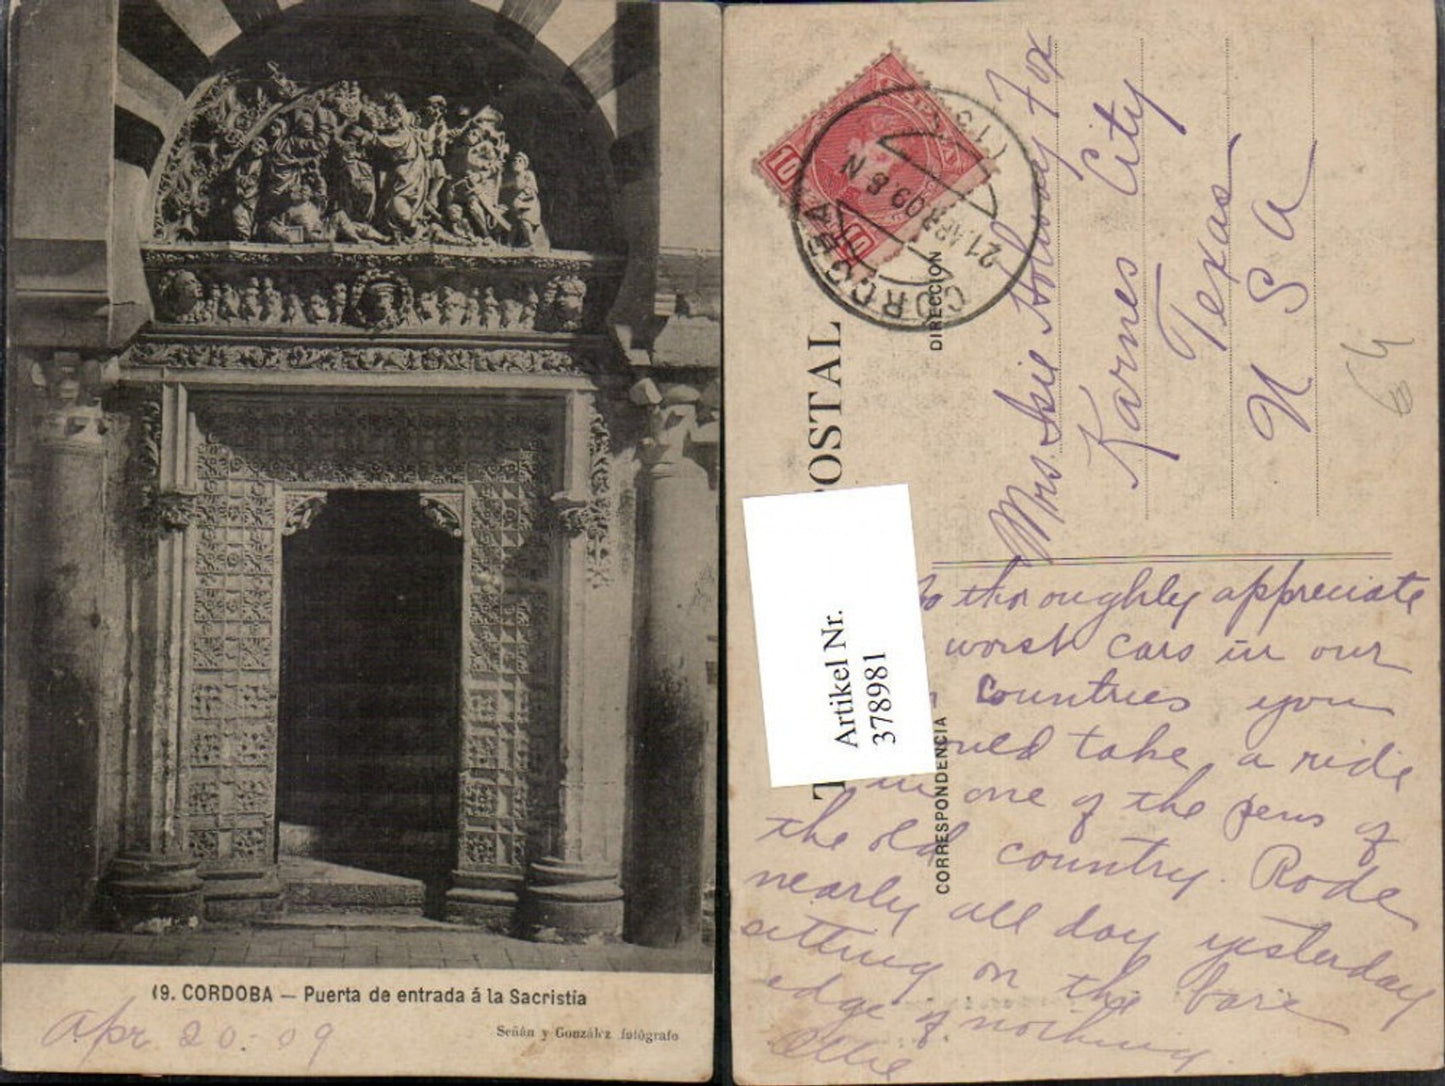 19. CORDOBA — Puerta de entrada á la Sacristía
Señán y González fotógrafo
Apr 20-09
10
10
CORDOBA
21 APR 09 8 N
POSTAL
DIRECCIÓN
CORRESPONDENCIA
Artikel Nr.
378981
Mrs Holway Fox
Karnes City
Texas
U S A
64
To thoroughly appreciate
worst cars in our
countries you
would take a ride
in one of the pens of
the old country. Rode
nearly all day yesterday
sitting on the bare
edge of nothing.
Ollie